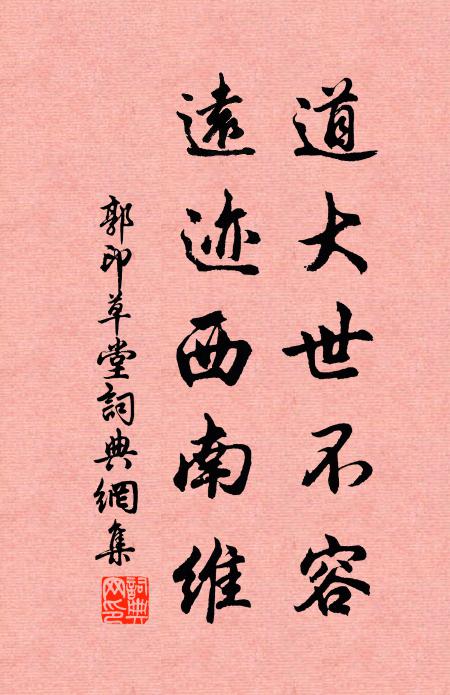 道大世不容
遠迹西南維
郭印草堂詞典網集
詞典
网印